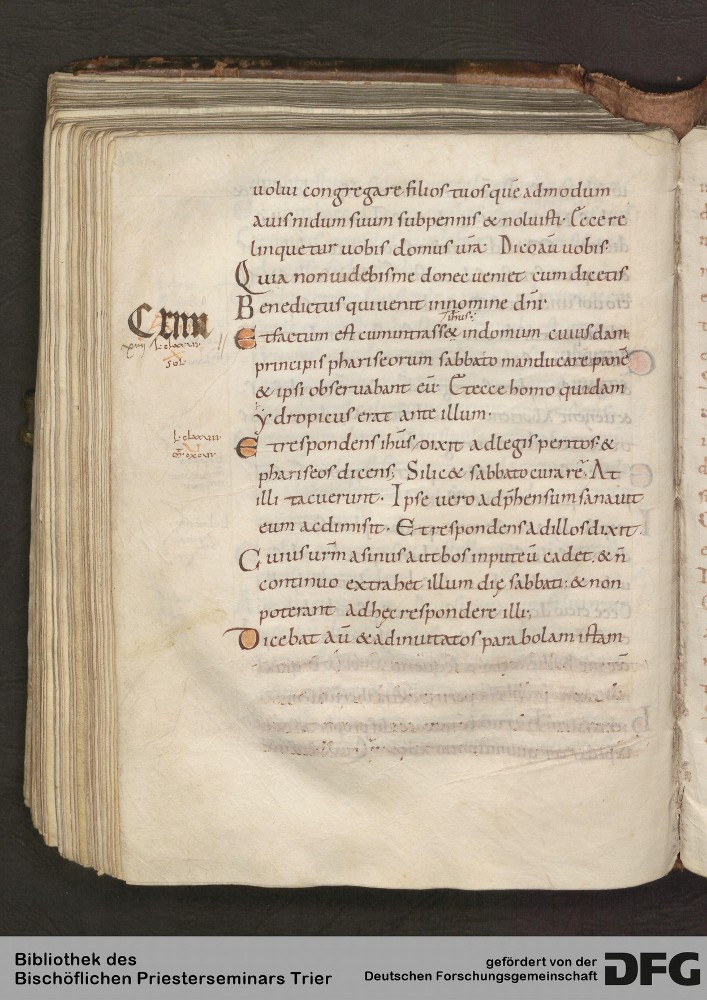 uolui congregare filios tuos quẽ admodum
auis nidum suum sub pennis & noluisti. Ecce re
linquetur uobis domus ur̃a. Dico aũ uobis.
Quia non uidebis me donec ueniet cum dicetis
Benedictus qui uenit in nomine dn̄i.
ihus
Cxiiii
Et factum est cum intrass& in domum cuiusdam
principis phariseorum sabbato manducare panẽ
& ipsi obseruabant eũ. Et ecce homo quidam
ydropicus erat ante illum.
Et respondens ihus dixit ad legis peritos &
phariseos dicens; Si lic& sabbato curare. At
illi tacuerunt. Ipse uero adp̄hensum sanauit
eum ac dimisit. Et respondens ad illos dixit.
Cuius ur̃m asinus aut bos in puteũ cadet. & ñ
continuo extrahet illum die sabbati. & non
poterant ad hec respondere illi;
Dicebat aũ & ad inuitatos parabolam istam
Bibliothek des
Bischöflichen Priesterseminars Trier
gefördert von der
Deutschen Forschungsgemeinschaft
DFG